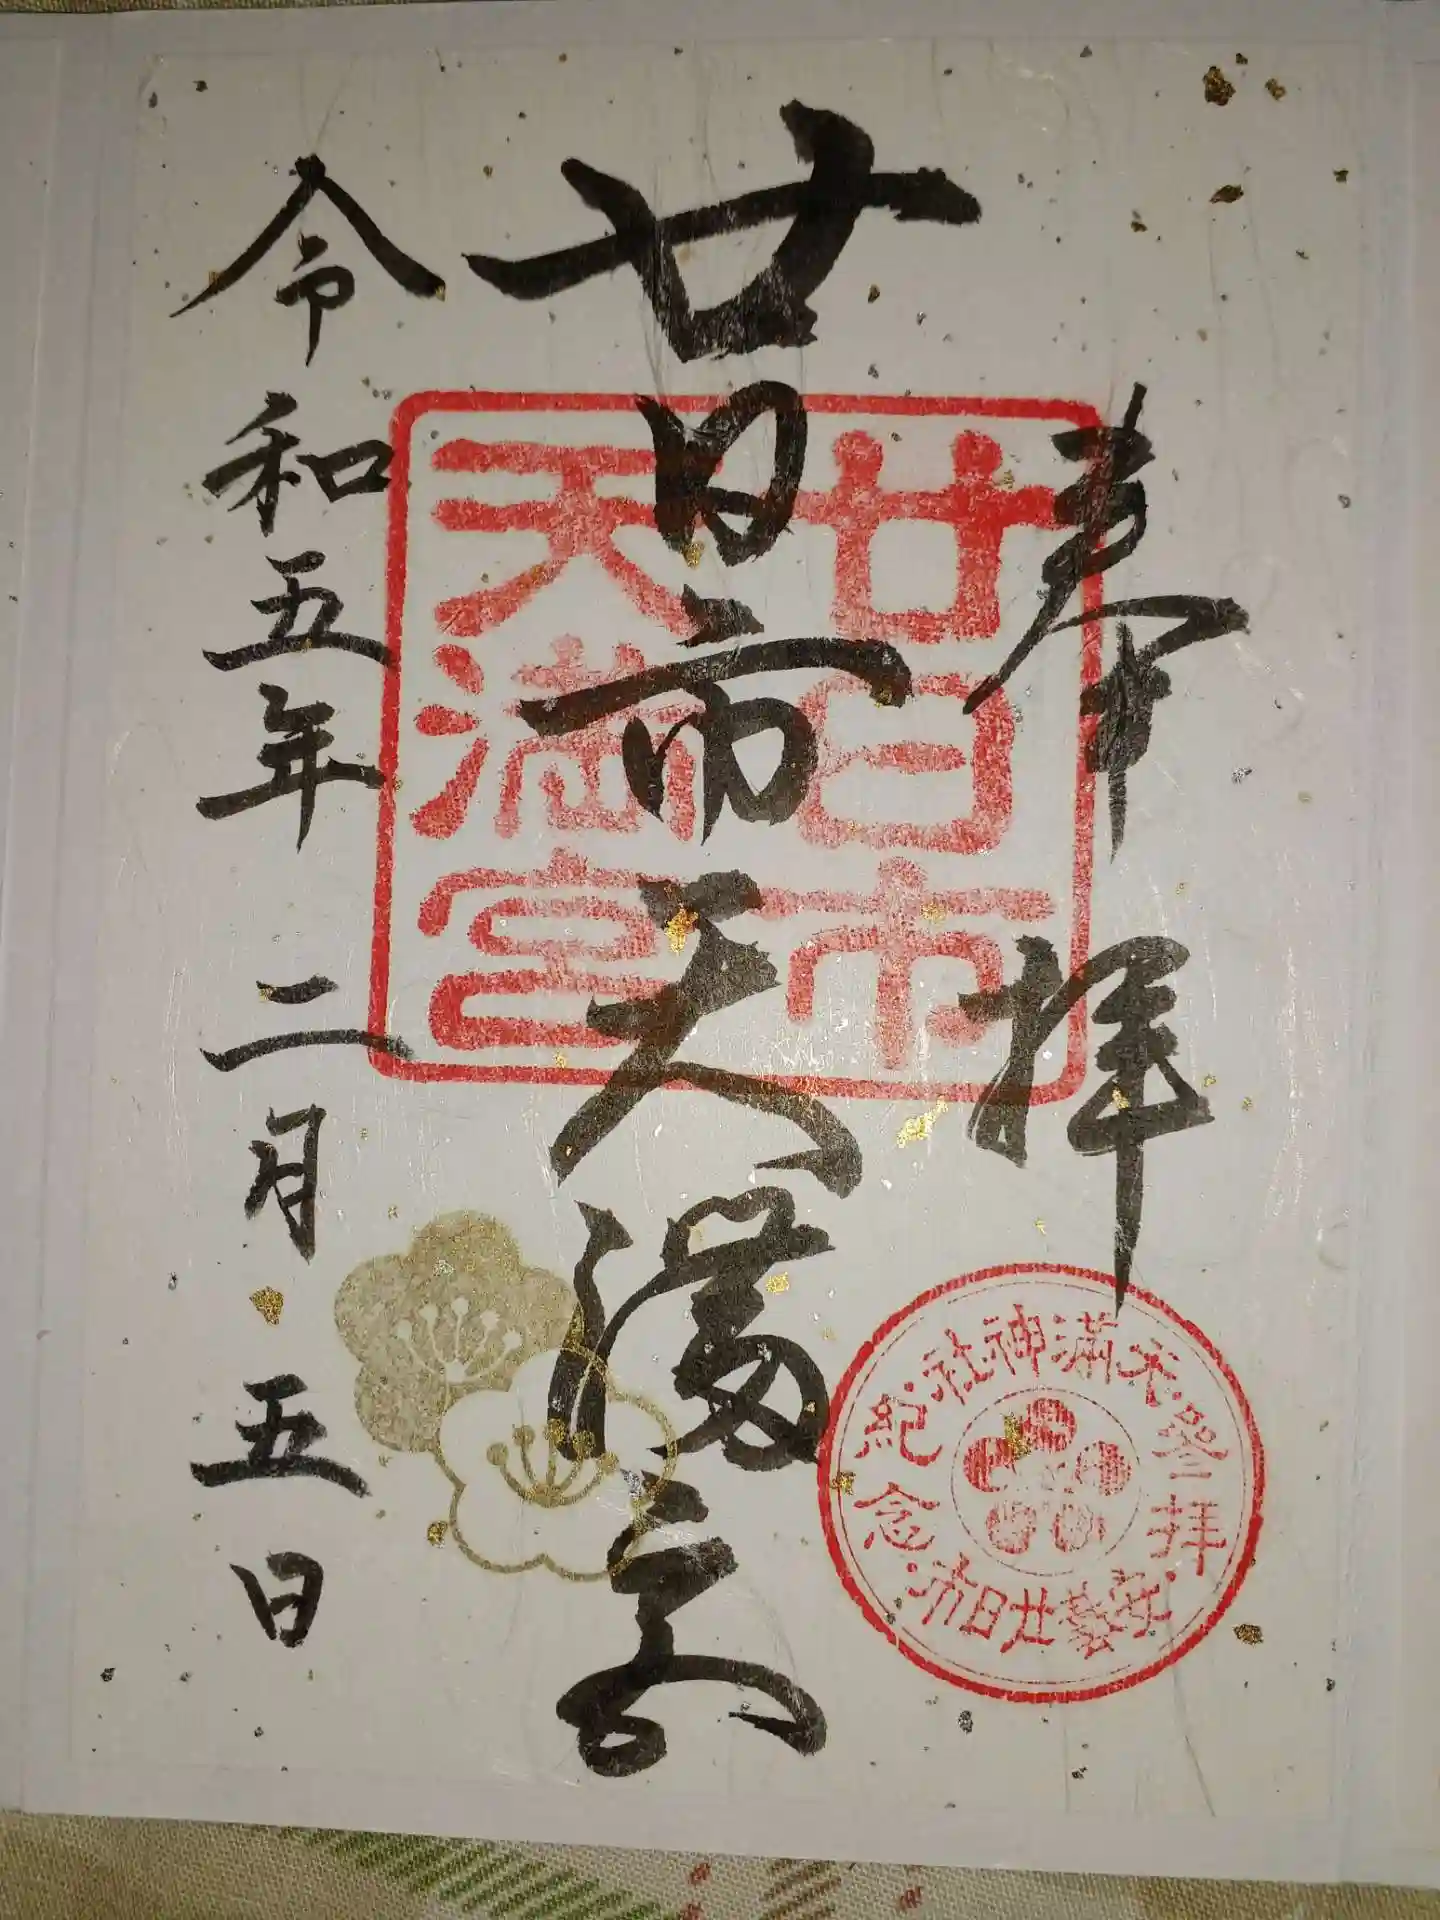 奉拝
廿日市天満宮
令和五年二月五日
廿日市
天満宮
天満神社
参拝
紀念
安藝廿日市